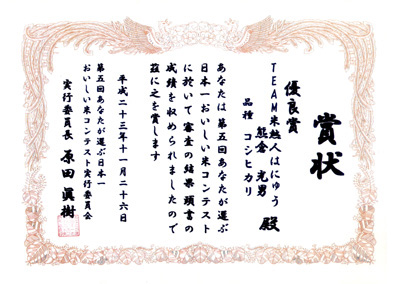 賞状
優良賞
TEAM米越人はにゅう
熊倉 光男 殿
品種 コシヒカリ
あなたは第五回あなたが選ぶ
日本一おいしい米コンテスト
に於いて審査の結果頭書の
成績を収められましたので
茲に之を賞します
平成二十三年十一月二十六日
第五回あなたが選ぶ日本一
おいしい米コンテスト実行委員会
実行委員長 原田 眞樹